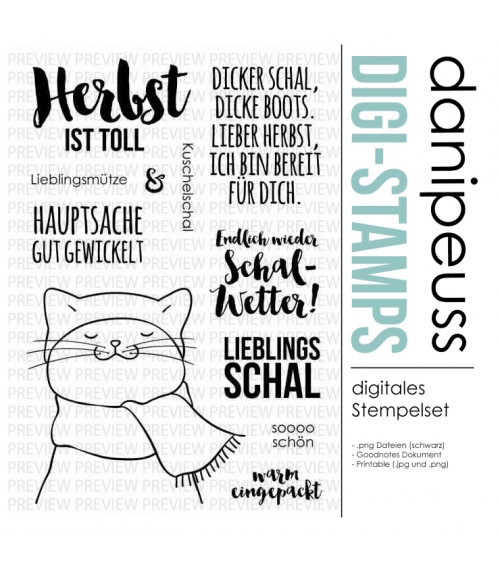 PREVIEW PREVIEW PREVIEW PREVIEW PREVIEW
Herbst
IST TOLL
Lieblingsmütze
&
Kuschelschal
HAUPTSACHE
GUT GEWICKELT
DICKER SCHAL,
DICKE BOOTS.
LIEBER HERBST,
ICH BIN BEREIT
FÜR DICH.
Endlich wieder
Schal-
Wetter!
LIEBLINGS
SCHAL
soooo
schön
warm
eingepackt
danipeuss
DIGI-STAMPS
digitales
Stempelset
- .png Dateien (schwarz)
- Goodnotes Dokument
- Printable (.jpg und .png)